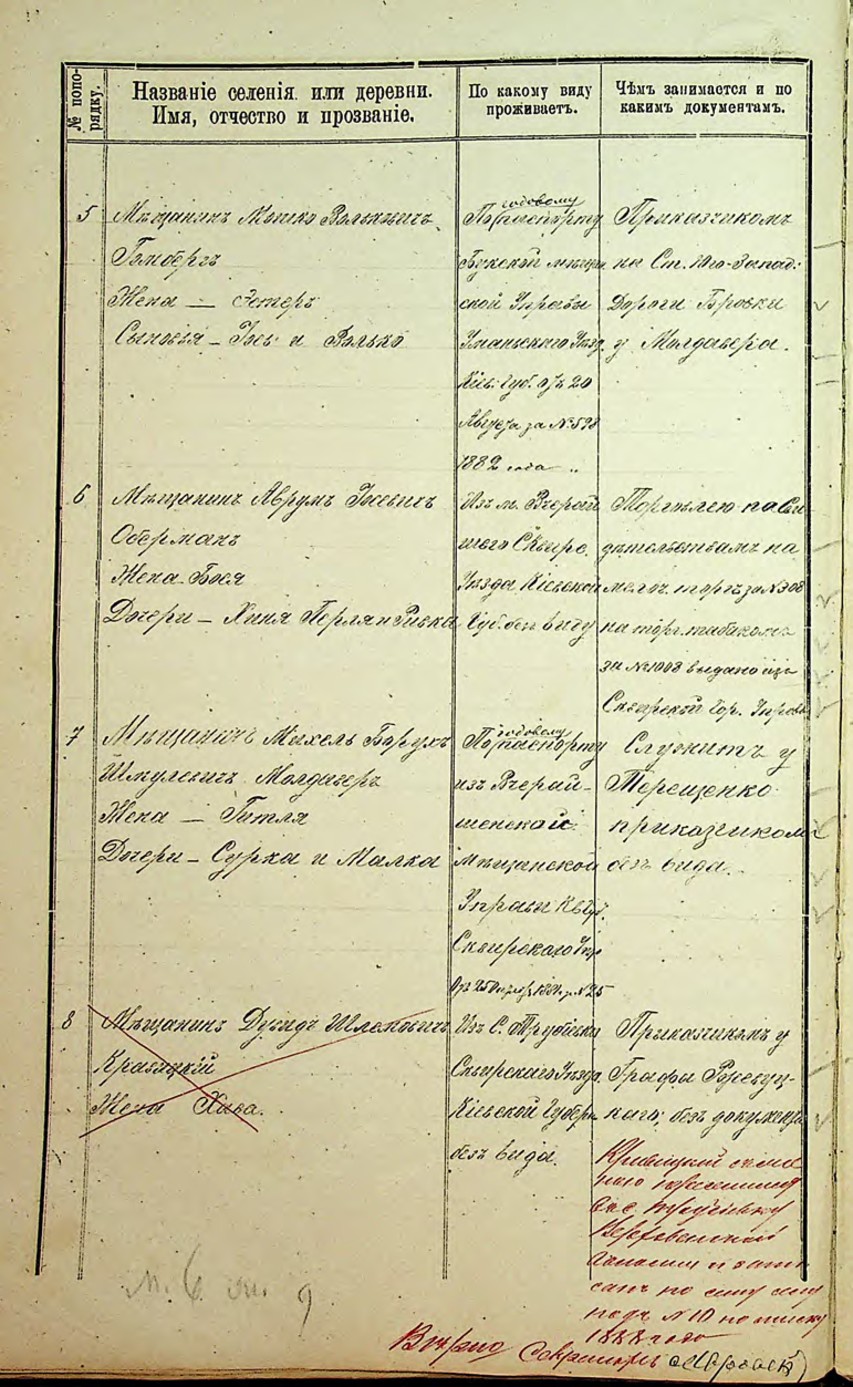 № попо-
рядку.
Названіе селенія или деревни.
Имя, отчество и прозваніе.
По какому виду
проживаетъ.
Чѣмъ занимается и по
какимъ документамъ.
5
Мѣщанинъ Мошко Волькович
Гомбергъ
Жена — Эстеръ
Сыновья — Іось и Волько
годовому
По паспорту
Букской мѣщан
ской Управы
Уманьскаго Уѣзд.
Кіев. Губ. отъ 20
Августа за № 598
1882 года
Приказчикомъ
на Ст. Юго-Запад.
Дороги Бровки
у Молдавера.
6
Мѣщанинъ Аврумъ Іосевичъ
Оберманъ
Жена Бося
Дочери — Хиня Перля и Ривка
Изъ м. Вчерай
шаго Сквирс.
Уѣзда Кіевской
Губ. безъ виду
Торговлею по Сви
дѣтельствамъ на
мелоч. торгъ за № 308
на торг. табакомъ
за № 1008 выдано изъ
Сквирской Гор. Управы
7
Мѣщанинъ Мыхель Барухъ
Шмулевичъ Молдаверъ
Жена — Гитля
Дочери — Сурка и Малка
годовому
По паспорту
изъ Вчерай-
шенской
Мѣщанской
Управы
Сквирскаго
№ 25
Служитъ у
Терещенко
приказчикомъ
безъ вида.
8
Мѣщанинъ Дувидъ Шлемовичъ
Кравицкій
Жена Хива.
Изъ С. Трубіевки
Сквирскаго Уѣзда
Кіевской Губерн.
безъ вида.
Приказчикомъ у
Графа Ржевуц-
каго, безъ документа
Кравицкій
въ с. Трубіевку
Верховенской
волости и запи
санъ по
подъ № 10 по списку
1888 года
Вѣрно Секретарь